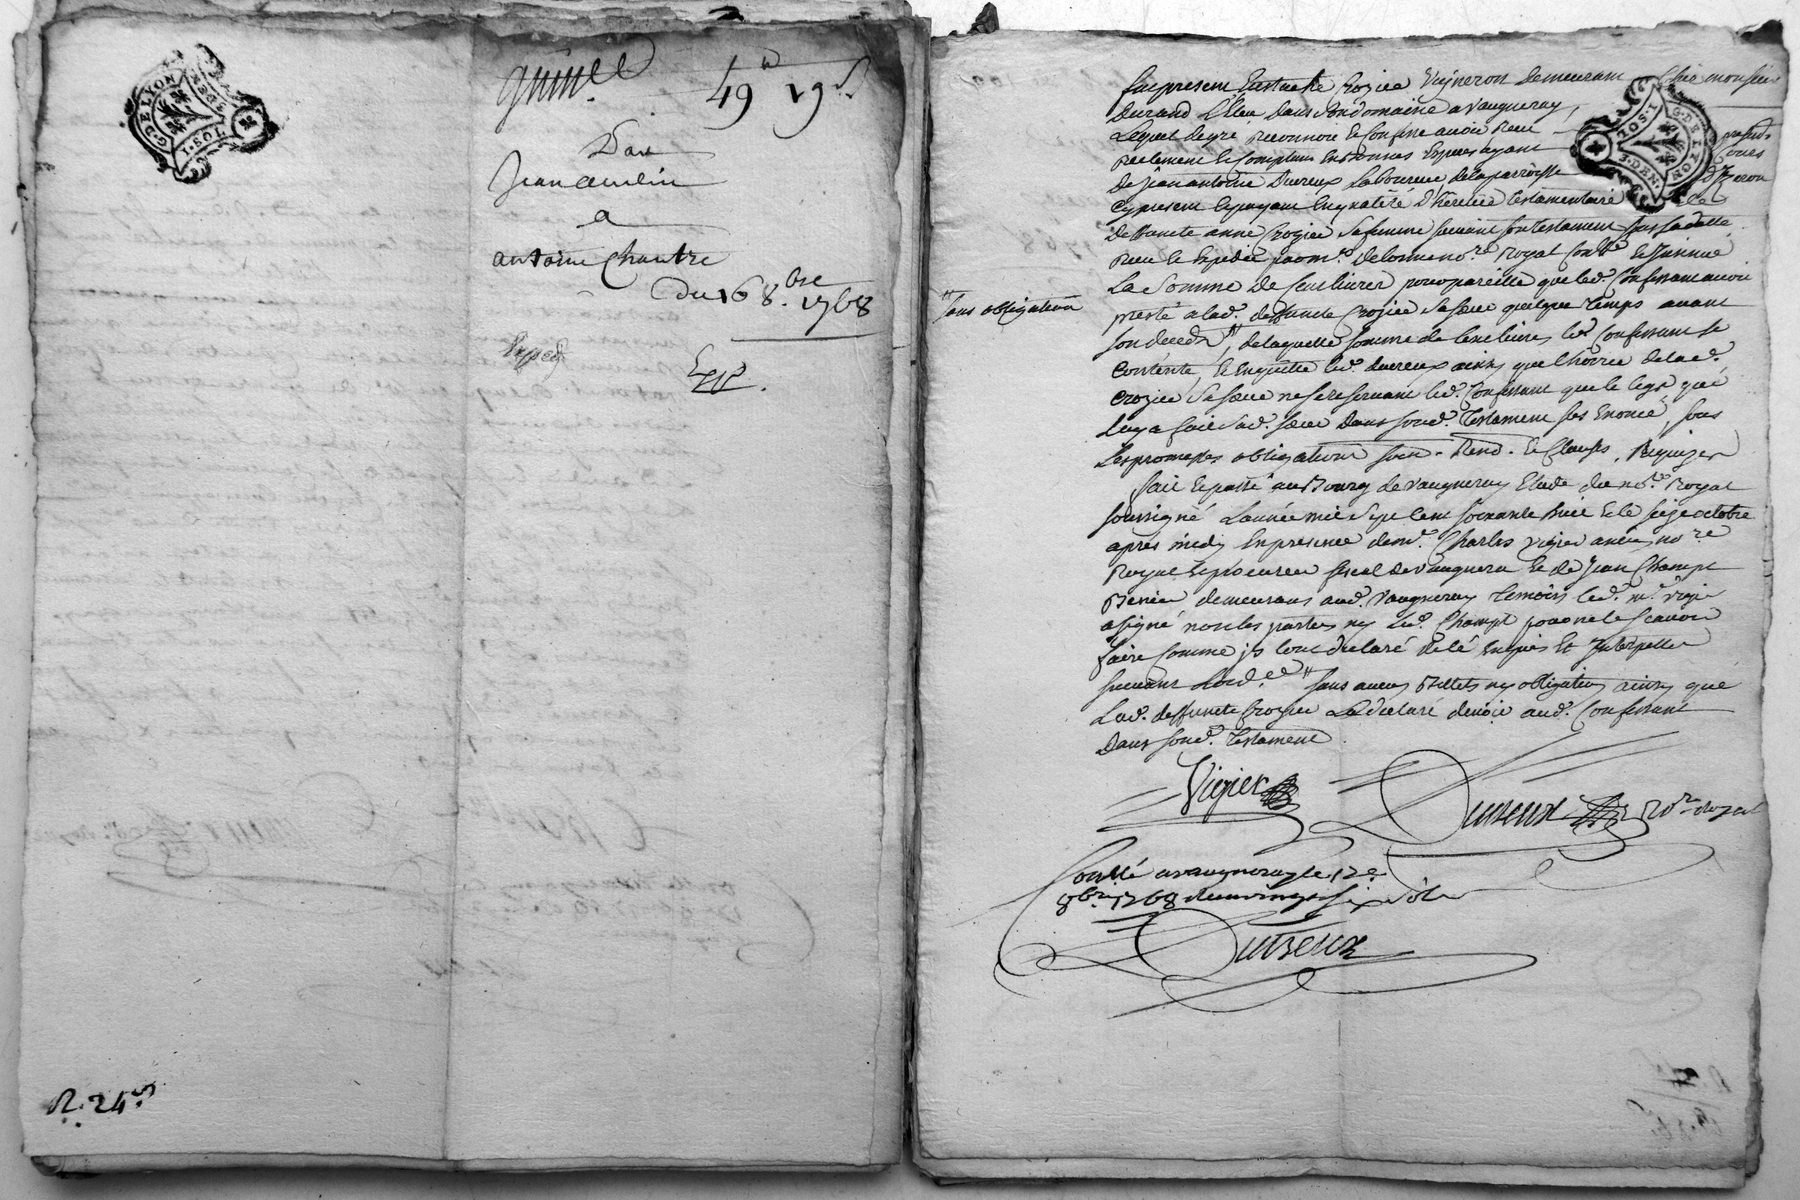 G. DE LYON
1. SOL
quitt.ce 49 # 19 s.
Par
Jean
a
antoine Chantre
Du 16 8.bre 1768
Exp.
R. 24 s.
fut present Eustache Crozier Vigneron demeurant Chés monsieur
Durand dans son domaine a Vaugneray,
Lequel de gré reconnoit et Confesse avoir Receu presentement
Reelement et Comptant en bonnes Especes ayant Cours
De Jean antoine Dureux Laboureur de la parroisse D'Izeron
Cy present et payant en qualité D'héritier testamentaire de
Deffuncte anne Crozier sa femme suivant son testament sous sa datte
Receu et Expedié par m.e Delorme no.re Royal Con.lé et Insinué
La Somme De Cent livres pour pareille que led. Confessant avoit
presté a lad. deffuncte Crozier Sa sœur quelque temps avant
son deced , de laquelle somme de Cent livres led. Confessant se
Contente, et en quitte led. Dureux ainsy que L'hoirie de lad.
Crozier Sa sœur ne se reservant led. Confessant que le legs que
Luy a fait Sad. sœur Dans sond. Testament sus Enoncé, sous
Les promesses obligations soum. Rend. et Clauses Requises
fait et passé au Bourg de Vaugneray Etude du no.re Royal
soussigné L'année mil Sept Cent soixante huit et le seize octobre
après midy En presence de m.e Charles Vigier ancien no.re
Royal et procureur fiscal de Vaugneray et de Jean Champt
demeurans aud. Vaugneray temoins led. m.e Vigier
a signé non les parties ny led. Champt pour ne le scavoir
faire Comme ils l'ont declaré de ce Enquis Et Interpellés
suivant L'ord.ce " sans aucun Billets ny obligation ainsy que
Lad. deffuncte Crozier L'a declaré devoir aud. Confessant
Dans sond. Testament
" sans obligation
Vigier Dureux no.re royal
Con.llé a vaugneray le
8bre 1768 six sols
Dureux